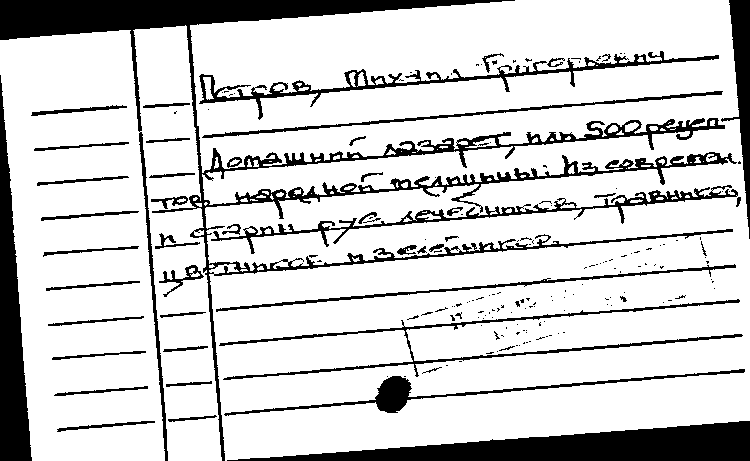 Петров, Михаил Григорьевич.
Домашний лазарет, или 500 рецеп-
тов народной медицины: Из современ.
и старин. рус. лечебников, травников,
цветников и зелейников.